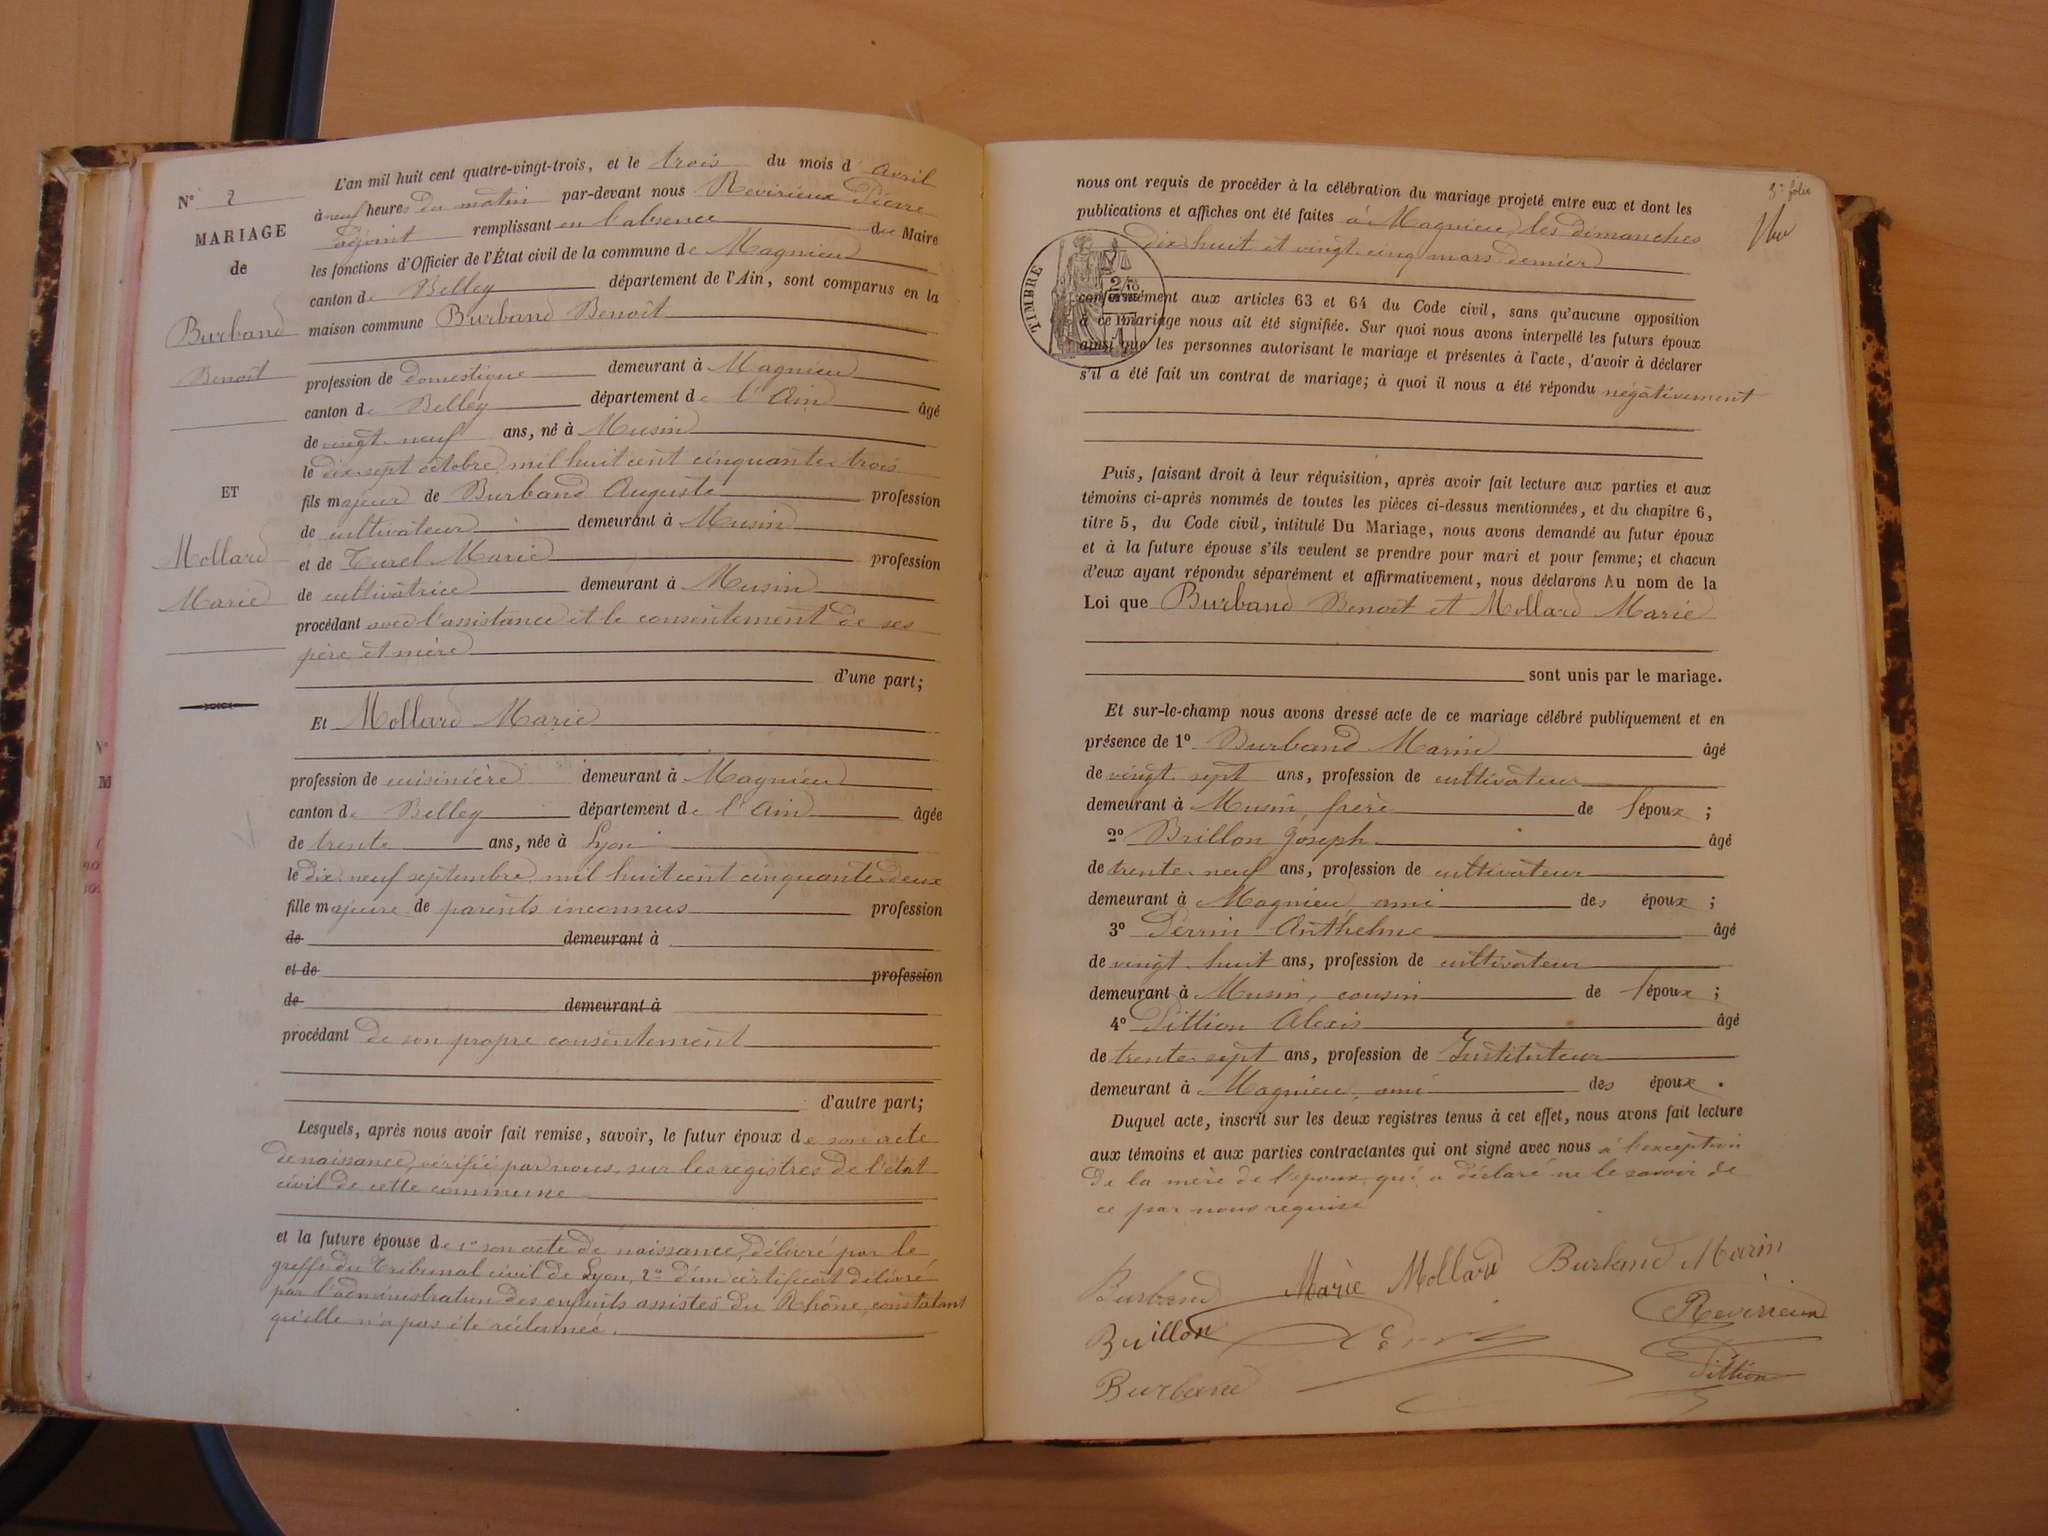 N° 2
MARIAGE
de
Burband
Benoît
ET
Mollard
Marie
L'an mil huit cent quatre-vingt-trois, et le trois du mois d'Avril
à neuf heures du matin par-devant nous Revirieux Pierre
adjoint remplissant en l'absence du Maire
les fonctions d'Officier de l'État civil de la commune de Magnieu
canton de Belley département de l'Ain, sont comparus en la
maison commune Burband Benoît
profession de domestique demeurant à Magnieu
canton de Belley département de l'Ain âgé
de vingt-neuf ans, né à Musin
le dix-sept octobre mil huit cent cinquante-trois
fils majeur de Burband Auguste profession
de cultivateur demeurant à Musin
et de Curel Marie profession
de cultivatrice demeurant à Musin
procédant avec l'assistance et le consentement de ses
père et mère
d'une part;
Et Mollard Marie
profession de cuisinière demeurant à Magnieu
canton de Belley département de l'Ain âgée
de trente ans, née à Lyon
le dix-neuf septembre mil huit cent cinquante-deux
fille majeure de parents inconnus profession
de demeurant à
et de profession
de demeurant à
procédant de son propre consentement
d'autre part;
Lesquels, après nous avoir fait remise, savoir, le futur époux de son acte
de naissance, vérifié par nous sur les registres de l'état
civil de cette commune
et la future épouse de 1° son acte de naissance, délivré par le
greffe du Tribunal civil de Lyon, 2° d'un certificat délivré
par l'administration des enfants assistés du Rhône, constatant
qu'elle n'a pas été réclamée.
3e folio
nous ont requis de procéder à la célébration du mariage projeté entre eux et dont les
publications et affiches ont été faites à Magnieu, les dimanches
dix-huit et vingt-cinq mars dernier
TIMBRE
conformément aux articles 63 et 64 du Code civil, sans qu'aucune opposition
à ce mariage nous ait été signifiée. Sur quoi nous avons interpellé les futurs époux
ainsi que les personnes autorisant le mariage et présentes à l'acte, d'avoir à déclarer
s'il a été fait un contrat de mariage; à quoi il nous a été répondu négativement
Puis, faisant droit à leur réquisition, après avoir fait lecture aux parties et aux
témoins ci-après nommés de toutes les pièces ci-dessus mentionnées, et du chapitre 6,
titre 5, du Code civil, intitulé Du Mariage, nous avons demandé au futur époux
et à la future épouse s'ils veulent se prendre pour mari et pour femme; et chacun
d'eux ayant répondu séparément et affirmativement, nous déclarons Au nom de la
Loi que Burband Benoît et Mollard Marie
sont unis par le mariage.
Et sur-le-champ nous avons dressé acte de ce mariage célébré publiquement et en
présence de 1° Burband Marin âgé
de vingt-sept ans, profession de cultivateur
demeurant à Musin, frère de l'époux ;
2° Brillon Joseph âgé
de trente-neuf ans, profession de cultivateur
demeurant à Magnieu, ami des époux ;
3° Perrin Anthelme âgé
de vingt-huit ans, profession de cultivateur
demeurant à Musin, cousin de l'époux ;
4° Pittion Alexis âgé
de trente-sept ans, profession de Instituteur
demeurant à Magnieu, ami des époux .
Duquel acte, inscrit sur les deux registres tenus à cet effet, nous avons fait lecture
aux témoins et aux parties contractantes qui ont signé avec nous à l'exception
de la mère de l'époux qui a déclaré ne le savoir de
ce par nous requise
Burband Marie Mollard Burband Marin
Brillon Revirieux
Burband Pittion